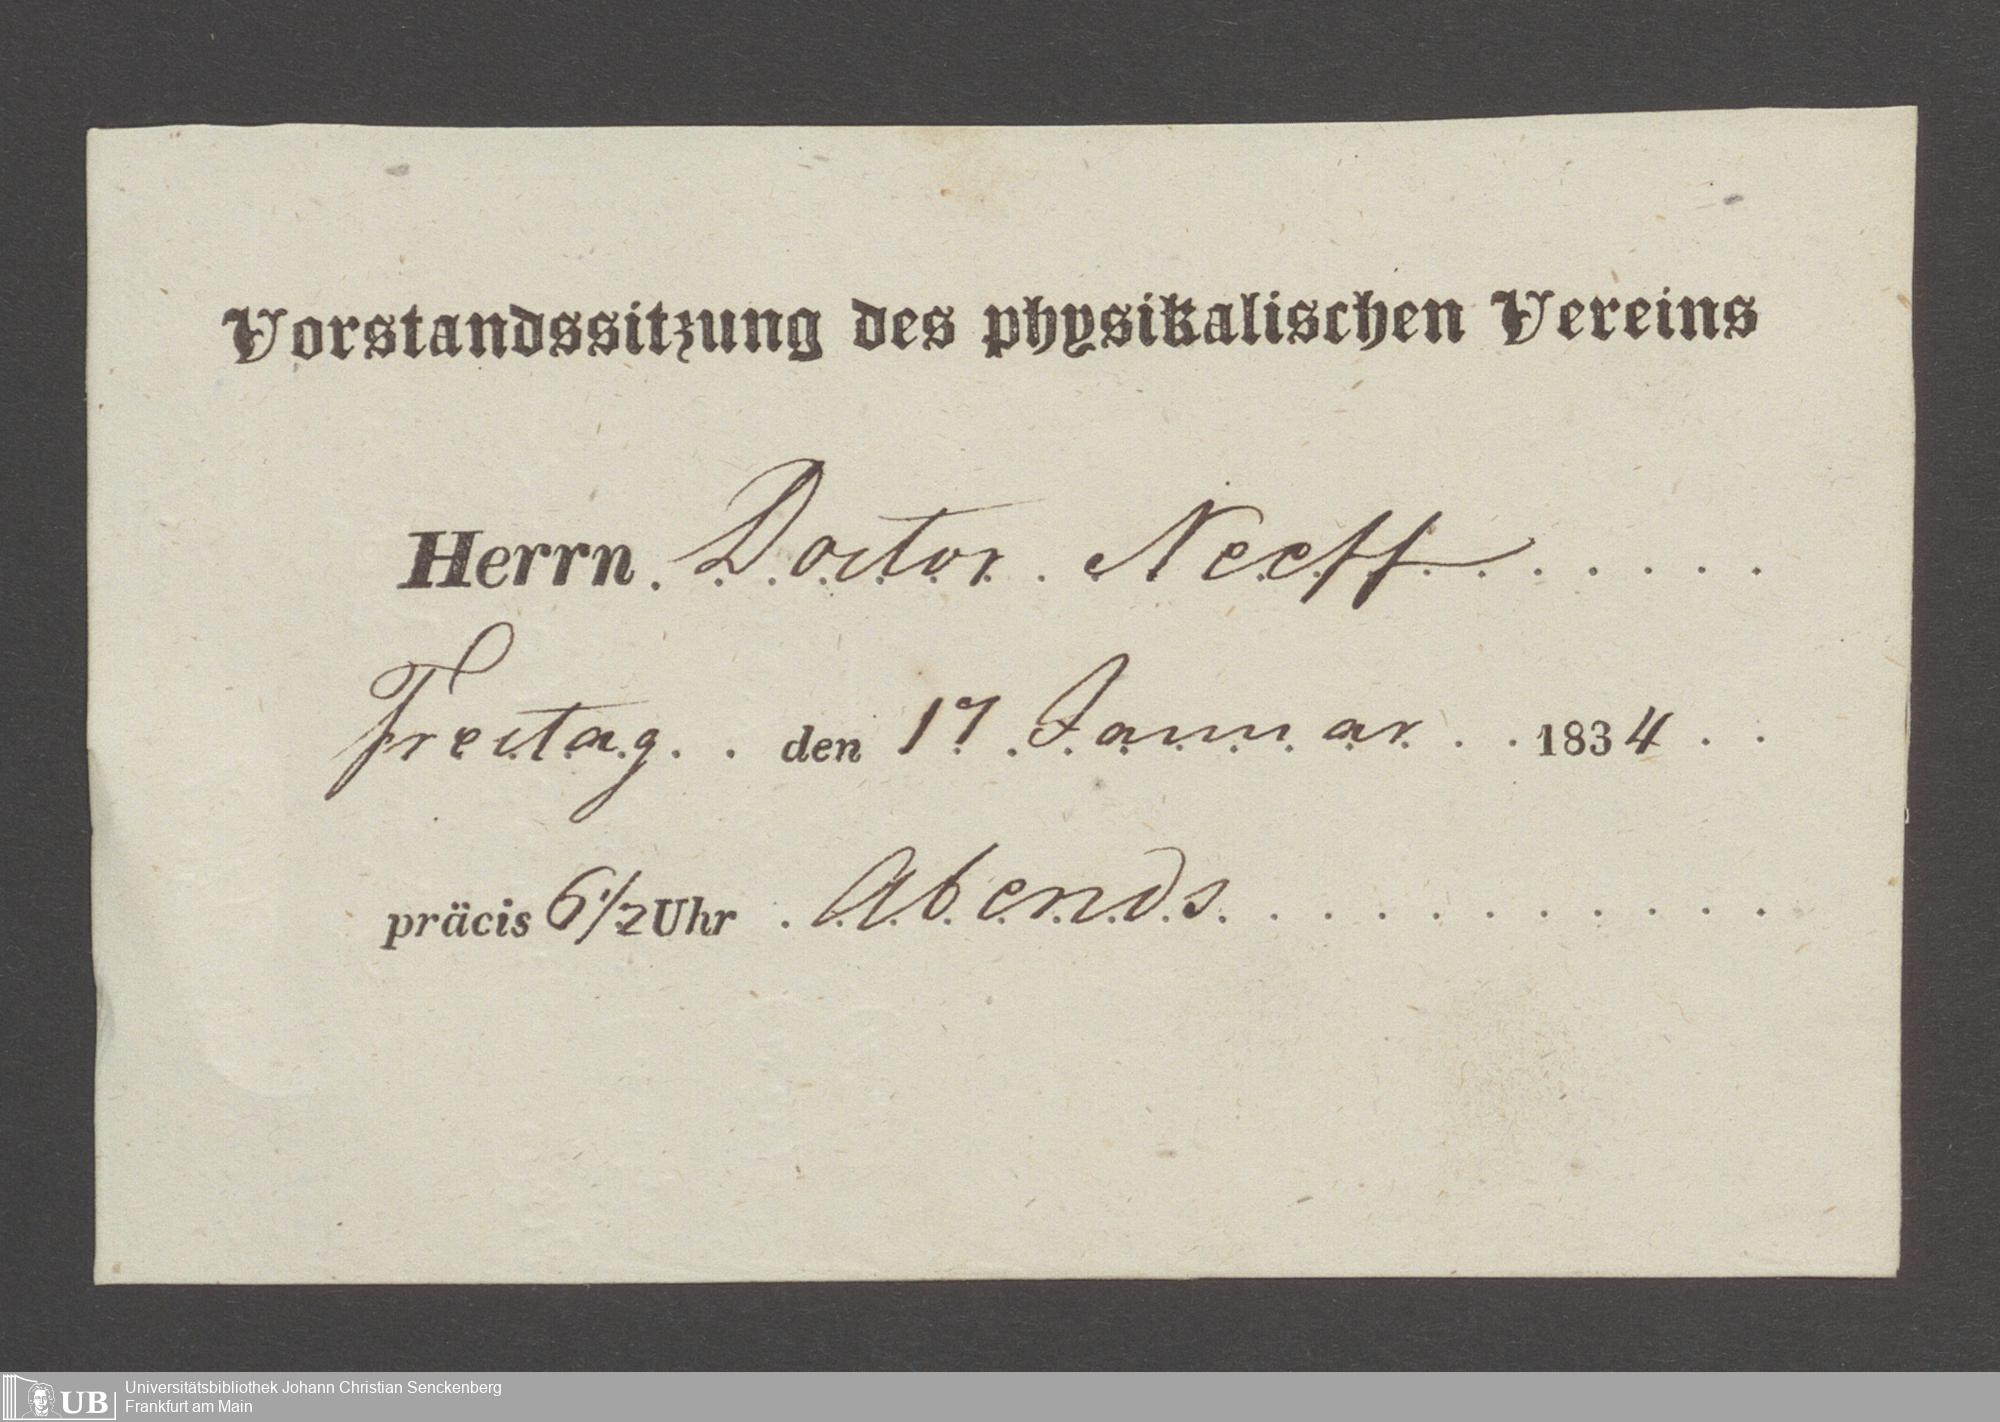 Vorstandssitzung des physikalischen Vereins
Herrn. Doctor Neeff
Freitag. den 17 Januar 1834
präcis 6 1/2 Uhr Abends
UB Universitätsbibliothek Johann Christian Senckenberg
Frankfurt am Main